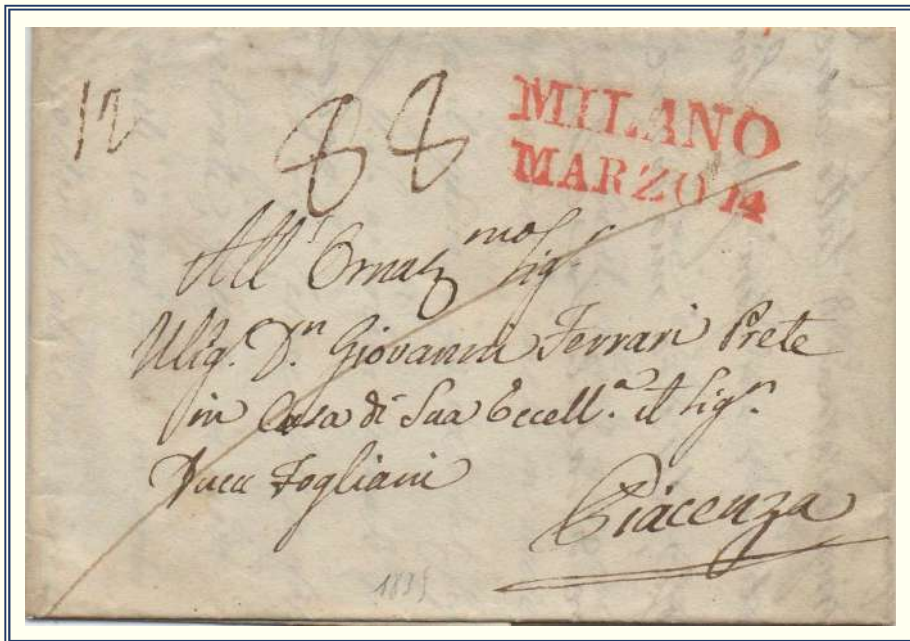 12
MILANO
MARZO 14
All' Ornat.mo Sig.r
Giovanni Ferrari Prete
in Casa di Sua Eccell.a il Sig.r
Duca Fogliani
Piacenza